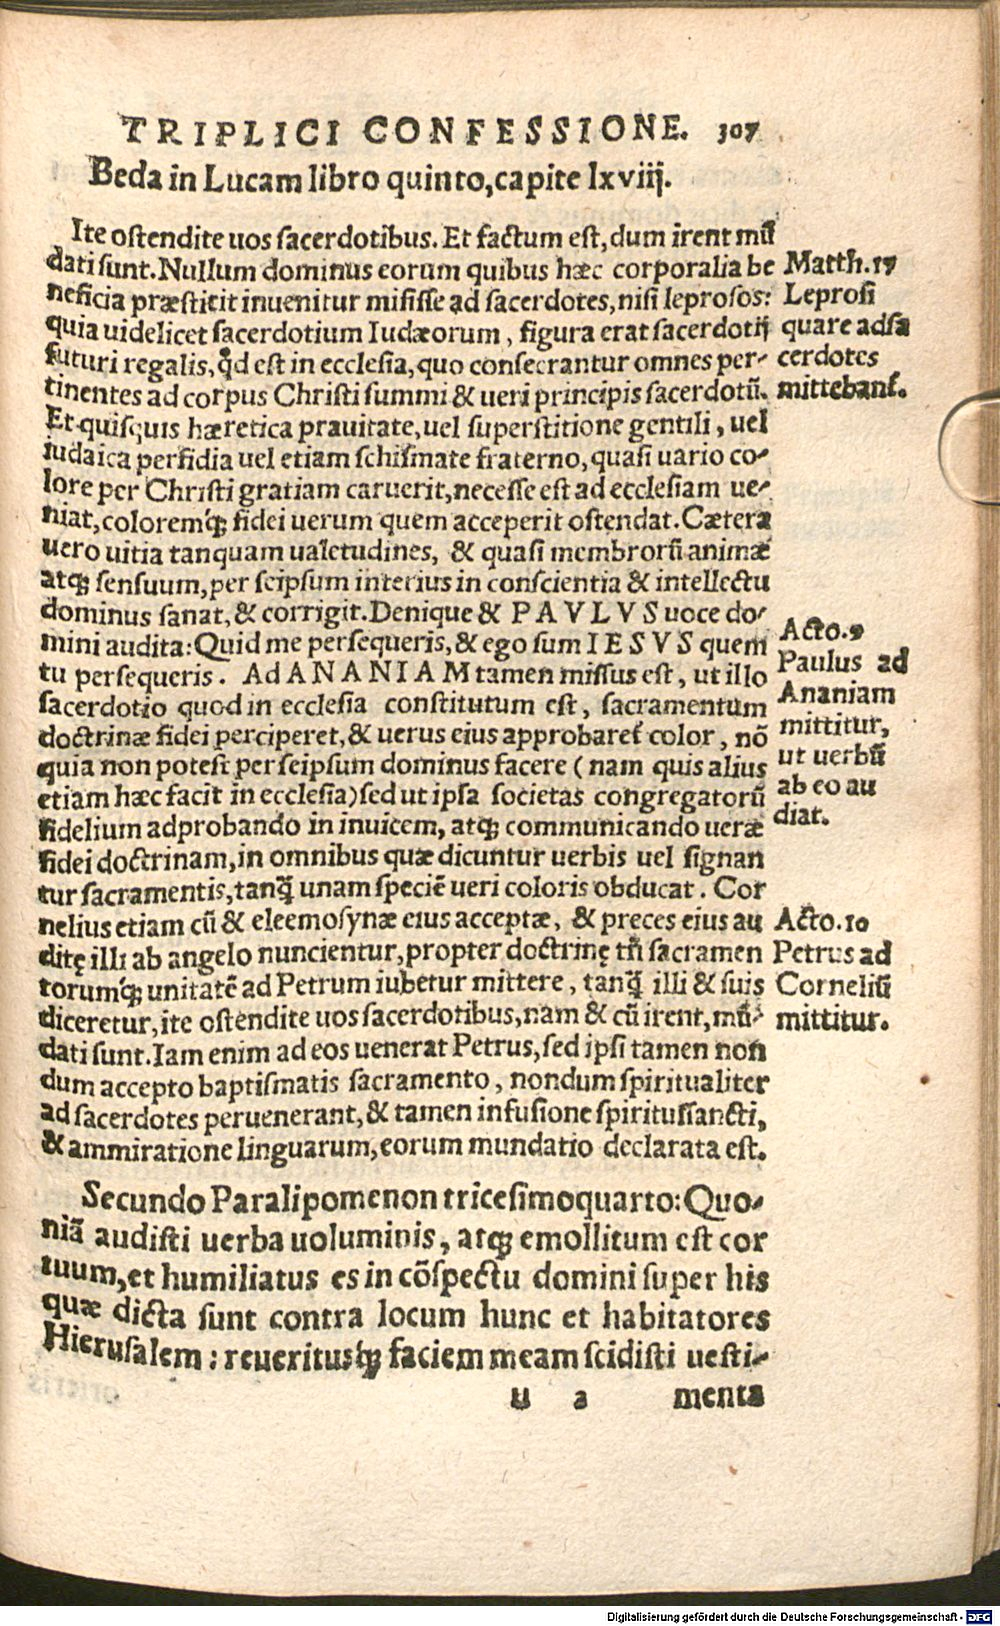 TRIPLICI CONFESSIONE. 307
Beda in Lucam libro quinto, capite lxviij.
Ite ostendite uos sacerdotibus. Et factum est, dum irent mũ
dati sunt. Nullum dominus eorum quibus hæc corporalia be
neficia præstitit inuenitur misisse ad sacerdotes, nisi leprosos:
quia uidelicet sacerdotium Iudæorum, figura erat sacerdotij
futuri regalis, qd̓ est in ecclesia, quo consecrantur omnes per-
tinentes ad corpus Christi summi & ueri principis sacerdotũ.
Et quisquis hæretica prauitate, uel superstitione gentili, uel
iudaica perfidia uel etiam schismate fraterno, quasi uario co-
lore per Christi gratiam caruerit, necesse est ad ecclesiam ue-
niat, coloremq́; fidei uerum quem acceperit ostendat. Cætera
uero uitia tanquam ualetudines, & quasi membrorũ animæ
atq; sensuum, per seipsum interius in conscientia & intellectu
dominus sanat, & corrigit. Denique & PAVLVS uoce do-
mini audita: Quid me persequeris, & ego sum IESVS quem
tu persequeris. Ad ANANIAM tamen missus est, ut illo
sacerdotio quod in ecclesia constitutum est, sacramentum
doctrinæ fidei perciperet, & uerus eius approbaret̃ color, nõ
quia non potest per seipsum dominus facere (nam quis alius
etiam hæc facit in ecclesia) sed ut ipsa societas congregatorũ
fidelium adprobando in inuicem, atq; communicando ueræ
fidei doctrinam, in omnibus quæ dicuntur uerbis uel signan
tur sacramentis, tanq̃ unam speciẽ ueri coloris obducat. Cor
nelius etiam cũ & eleemosynæ eius acceptæ, & preces eius au
ditę illi ab angelo nuncientur, propter doctrinę tñ sacramen
torumq́; unitatẽ ad Petrum iubetur mittere, tanq̃ illi & suis
diceretur, ite ostendite uos sacerdotibus, nam & cũ irent, mũ-
dati sunt. Iam enim ad eos uenerat Petrus, sed ipsi tamen non
dum accepto baptismatis sacramento, nondum spiritualiter
ad sacerdotes peruenerant, & tamen infusione spiritussancti,
& ammiratione linguarum, eorum mundatio declarata est.
Secundo Paralipomenon tricesimoquarto: Quo-
niã audisti uerba uoluminis, atq; emollitum est cor
tuum, et humiliatus es in cõspectu domini super his
quæ dicta sunt contra locum hunc et habitatores
Hierusalem: reueritusq́; faciem meam scidisti uesti-
u a menta
Matth. 17
Leprosi
quare ad sa
cerdotes
mittebant̃.
Acto. 9
Paulus ad
Ananiam
mittitur,
ut uerbũ
ab eo au
diat.
Acto. 10
Petrus ad
Corneliũ
mittitur.
Digitalisierung gefördert durch die Deutsche Forschungsgemeinschaft - DFG